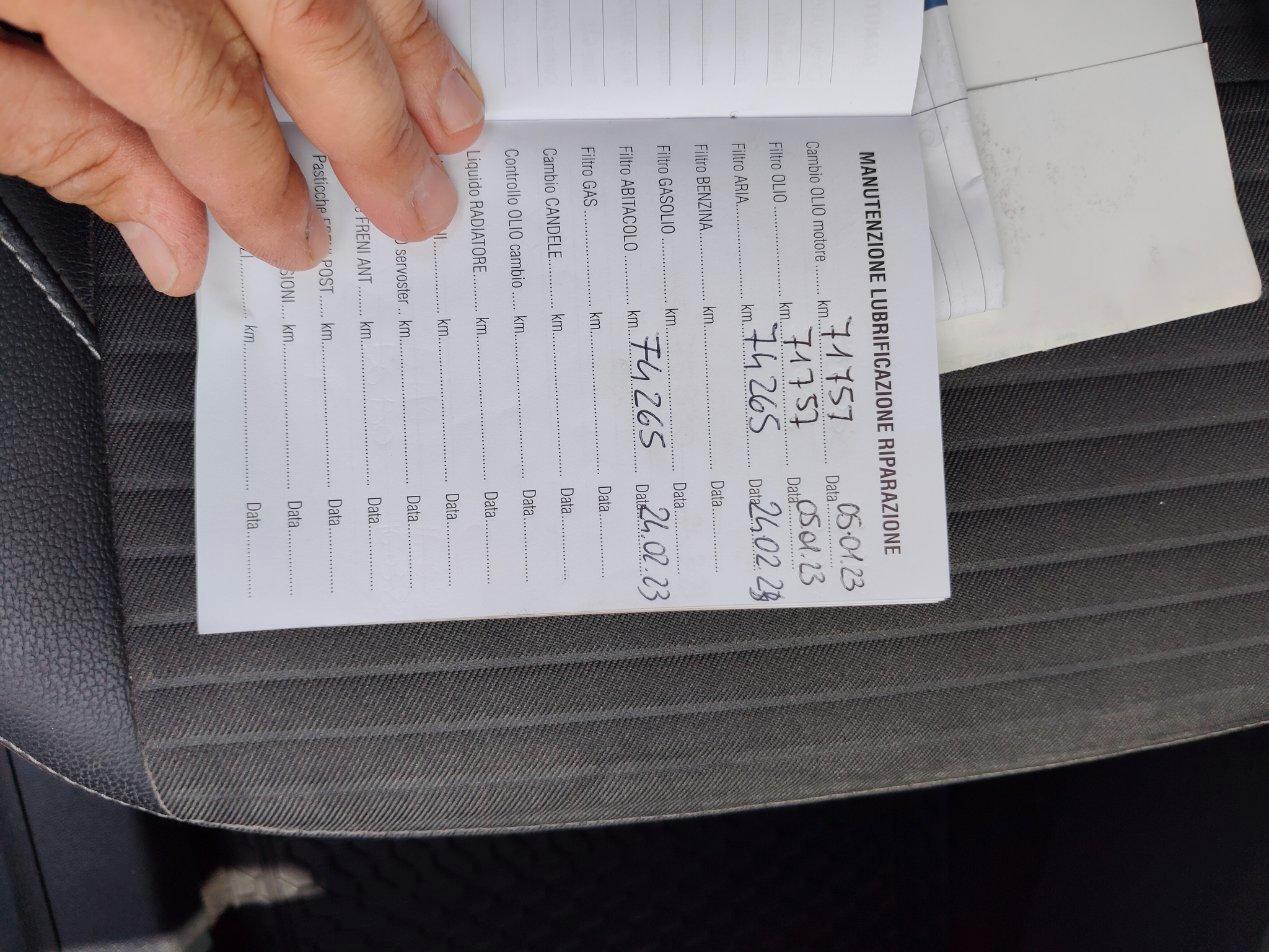 MANUTENZIONE LUBRIFICAZIONE RIPARAZIONE
Cambio OLIO motore ...... km. 71757 Data 05.01.23
Filtro OLIO ...... km. 71757 Data 05.01.23
Filtro ARIA ...... km. 74265 Data 24.02.23
Filtro BENZINA ...... km. ...... Data ......
Filtro GASOLIO ...... km. ...... Data ......
Filtro ABITACOLO ...... km. 74265 Data 24.02.23
Filtro GAS ...... km. ...... Data ......
Cambio CANDELE ...... km. ...... Data ......
Controllo OLIO cambio ...... km. ...... Data ......
Liquido RADIATORE ...... km. ...... Data ......
km. ...... Data ......
servoster .. km. ...... Data ......
FRENI ANT ...... km. ...... Data ......
Pasticche POST ...... km. ...... Data ......
km. ...... Data ......
km. ...... Data ......